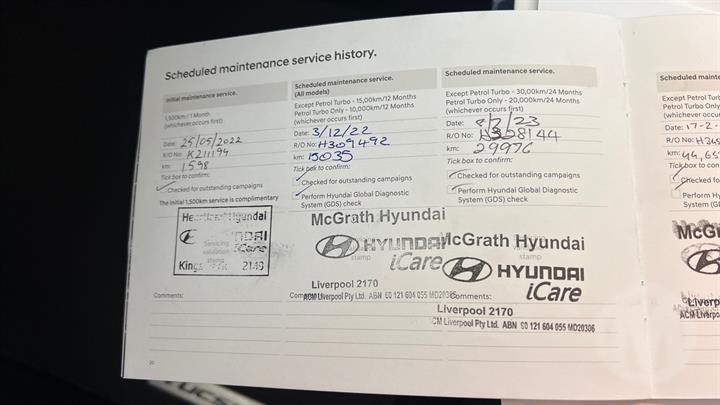 Scheduled maintenance service history.
Initial maintenance service.
1,500km / 1 Month
(whichever occurs first)
Date: 25/05/2022
R/O No: K211194
km: 1598
Tick box to confirm:
Checked for outstanding campaigns
The initial 1,500km service is complimentary
Hyundai
iCare
Servicing
validation
stamp
2148
Comments:
20
Scheduled maintenance service.
(All models)
Except Petrol Turbo - 15,00km/12 Months
Petrol Turbo Only - 10,000km/12 Months
(whichever occurs first)
Date: 3/12/22
R/O No: H309492
km: 15035
Tick box to confirm:
Checked for outstanding campaigns
Perform Hyundai Global Diagnostic
System (GDS) check
McGrath Hyundai
HYUNDAI
iCare
Liverpool 2170
ACM Liverpool Pty Ltd. ABN 60 121 604 055 MD20386
Scheduled maintenance service.
Except Petrol Turbo - 30,00km/24 Months
Petrol Turbo Only - 20,000km/24 Months
(whichever occurs first)
Date: /23
R/O No: 
km: 29976
Tick box to confirm:
Checked for outstanding campaigns
Perform Hyundai Global Diagnostic
System (GDS) check
McGrath Hyundai
stamp
HYUNDAI
iCare
Comments:
Liverpool 2170
CM Liverpool Pty Ltd. ABN 60 121 604 055 MD20386
Scheduled m
Except Petrol Turb
Petrol Turbo Only
(whichever occurs
Date: 17-2-
R/O No:
km: 44,65
Tick box to con
Checked fo
Perform Hy
System (G
McG
Liverp
ACM Liverpo